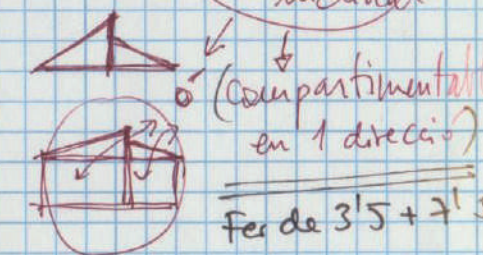 ó (compartimentable
en 1 direcció)
Fer de 3'5 + 7'